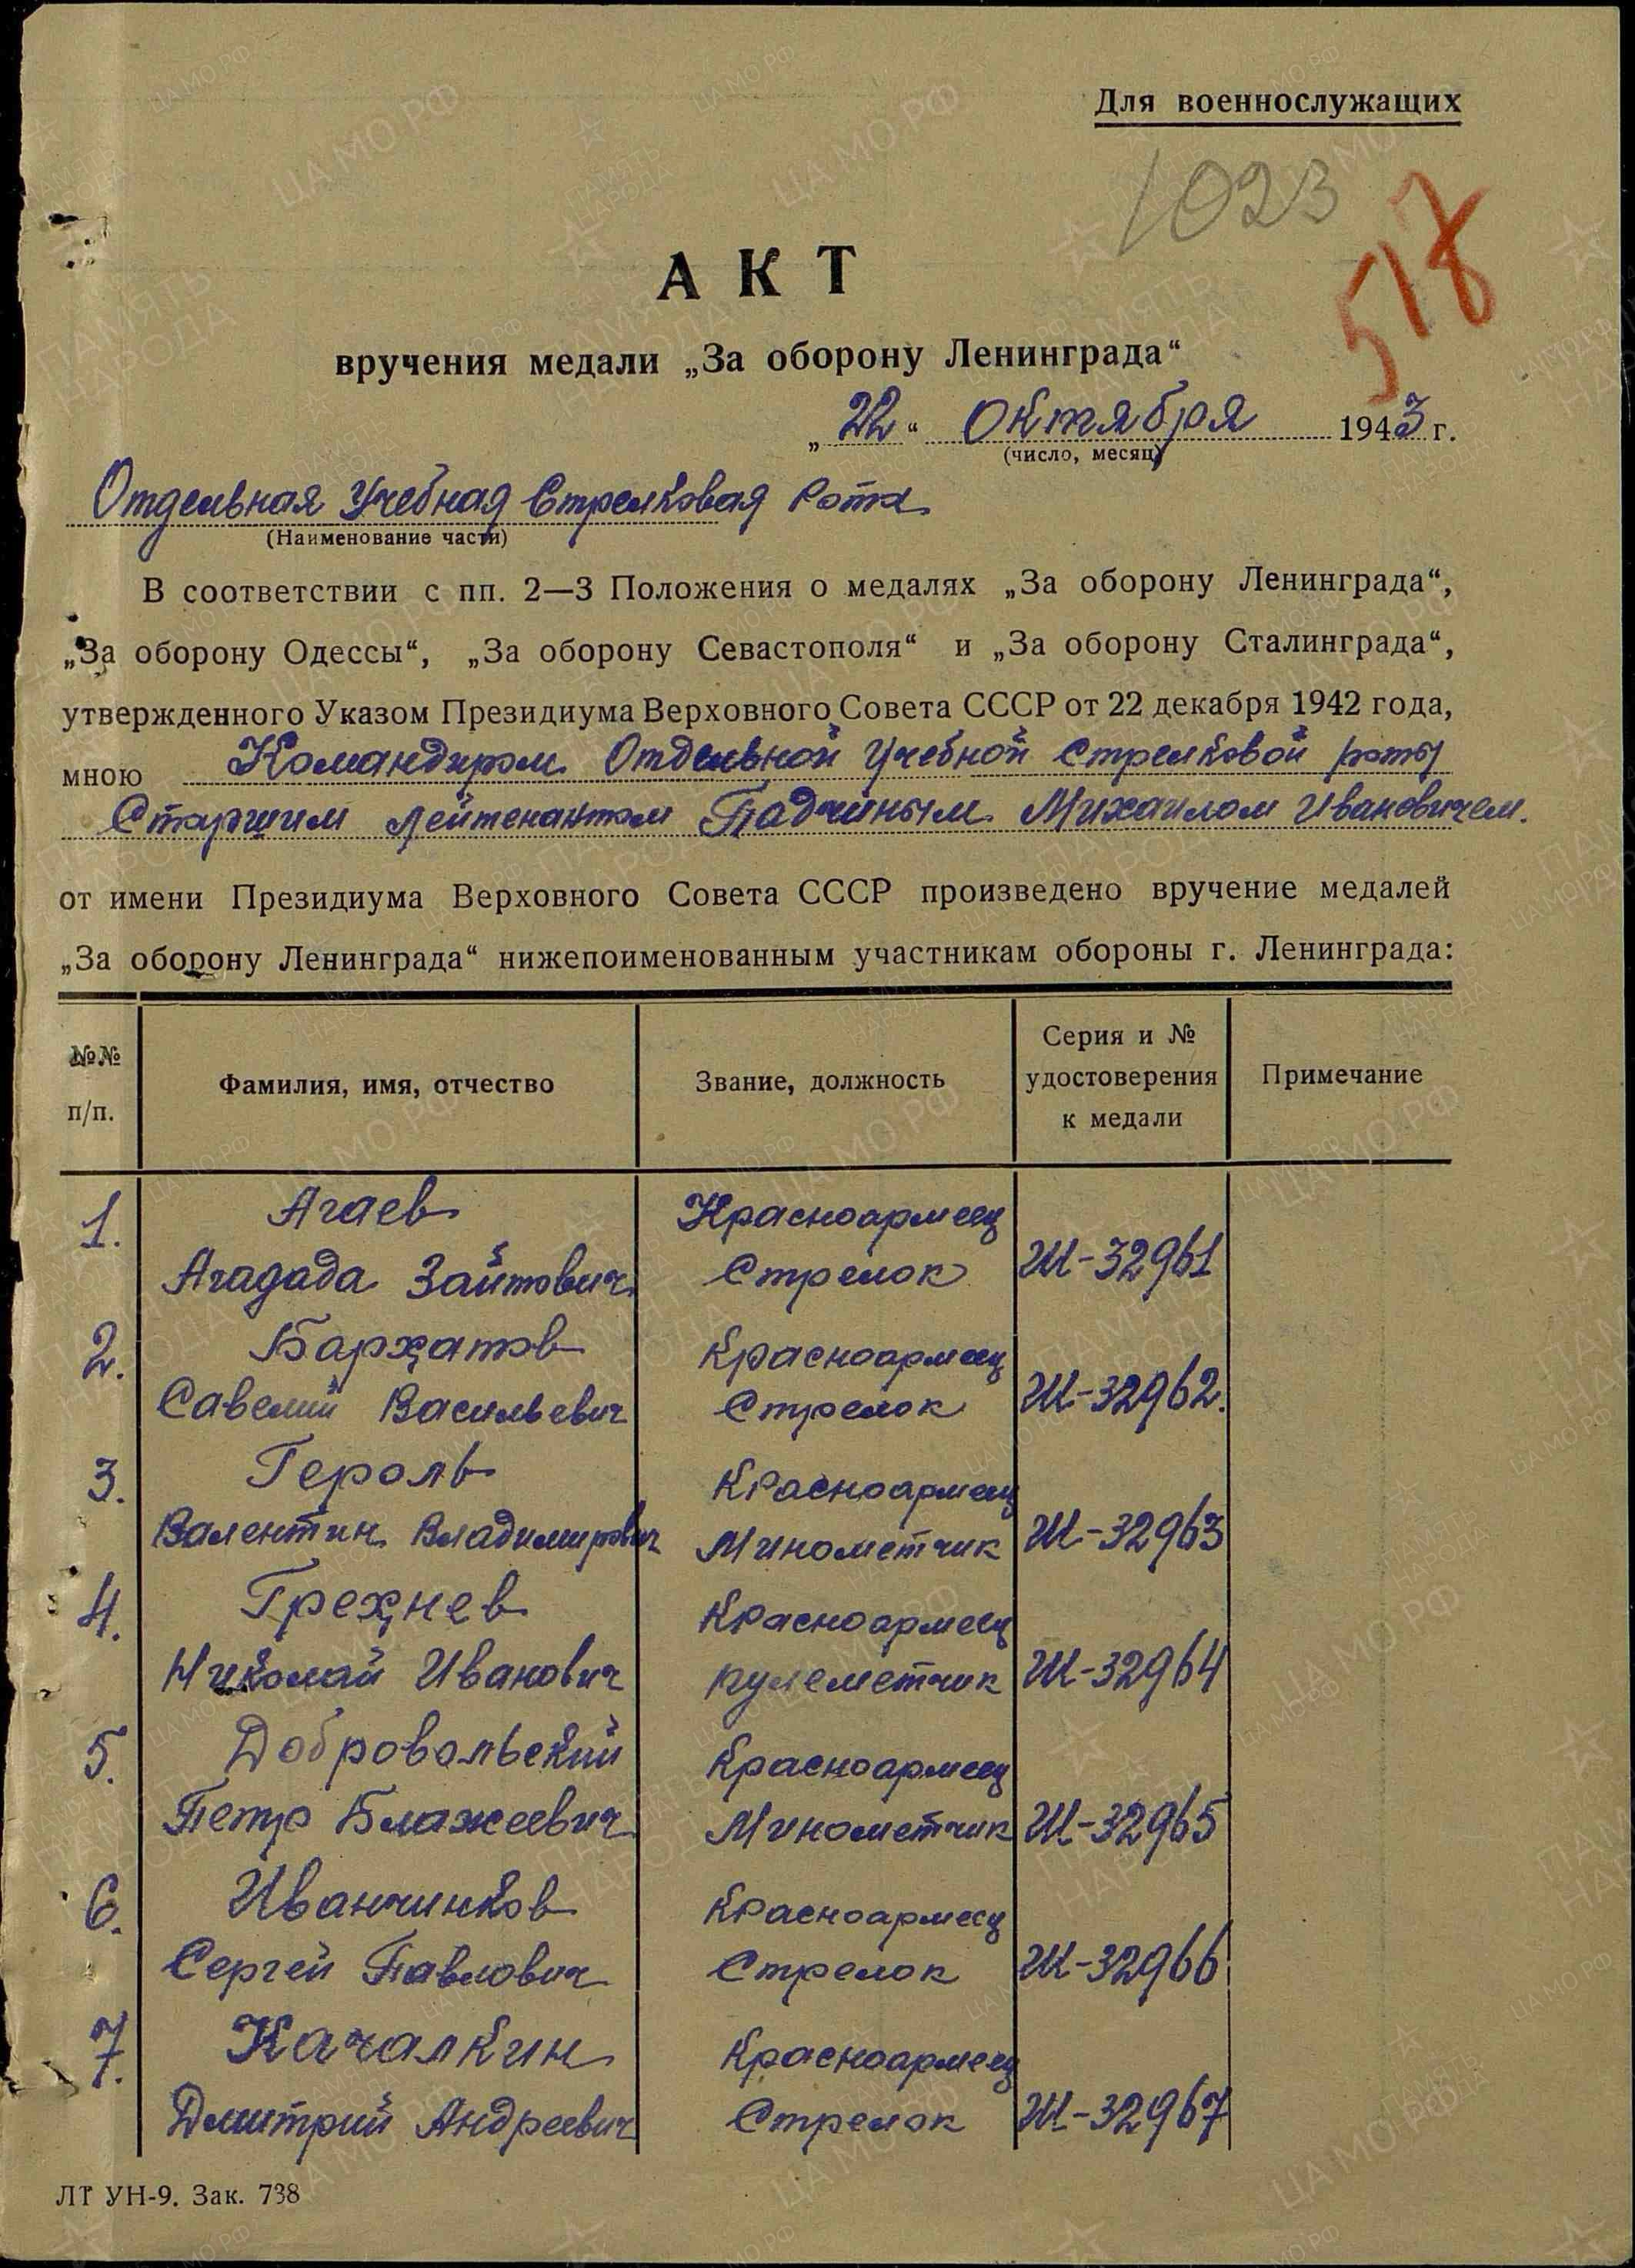 Для военнослужащих
1023
518
АКТ
вручения медали „За оборону Ленинграда“
„22“ Октября 1943 г.
(число, месяц)
Отдельная Учебная Стрелковая Рота
(Наименование части)
В соответствии с пп. 2—3 Положения о медалях „За оборону Ленинграда“,
„За оборону Одессы“, „За оборону Севастополя“ и „За оборону Сталинграда“,
утвержденного Указом Президиума Верховного Совета СССР от 22 декабря 1942 года,
мною Командиром Отдельной Учебной Стрелковой роты
Старшим лейтенантом Падчиным Михаилом Ивановичем.
от имени Президиума Верховного Совета СССР произведено вручение медалей
„За оборону Ленинграда“ нижепоименованным участникам обороны г. Ленинграда:
№№ п/п. Фамилия, имя, отчество Звание, должность Серия и № удостоверения к медали Примечание
1. Агаев Красноармеец
Агадада Зайтович Стрелок Ш-32961
2. Бархатов Красноармеец
Савелий Васильевич Стрелок Ш-32962.
3. Героль Красноармеец
Валентин Владимирович Минометчик Ш-32963
4. Грехнев Красноармеец
Николай Иванович пулеметчик Ш-32964
5. Добровольский Красноармеец
Петр Блажеевич Минометчик Ш-32965
6. Иванчинков Красноармеец
Сергей Павлович Стрелок Ш-32966
7. Качалкин Красноармеец
Дмитрий Андреевич Стрелок Ш-32967
ЛТ УН-9. Зак. 738
ПАМЯТЬ НАРОДА
ЦА МО РФ